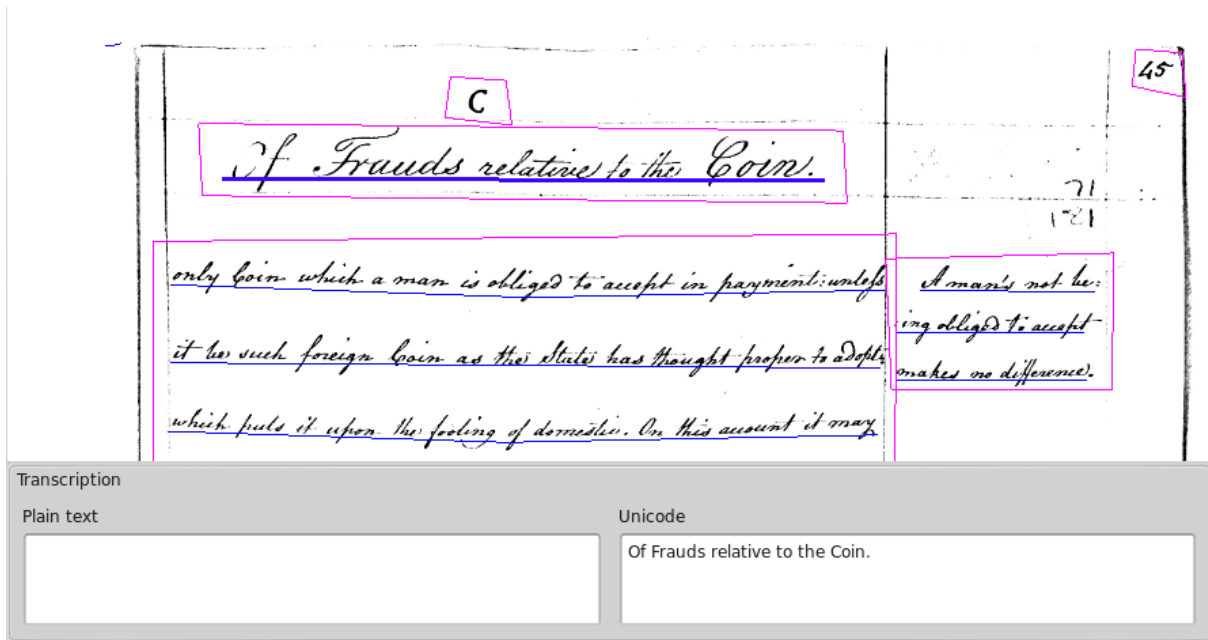 45
C
Of Frauds relative to the Coin.
71
121
only Coin which a man is obliged to accept in payment: unless
it be such foreign Coin as the State has thought proper to adopt,
which puts it upon the footing of domestic. On this account it may
A man's not be:
ing obliged to accept
makes no difference.
Transcription
Plain text
Unicode
Of Frauds relative to the Coin.